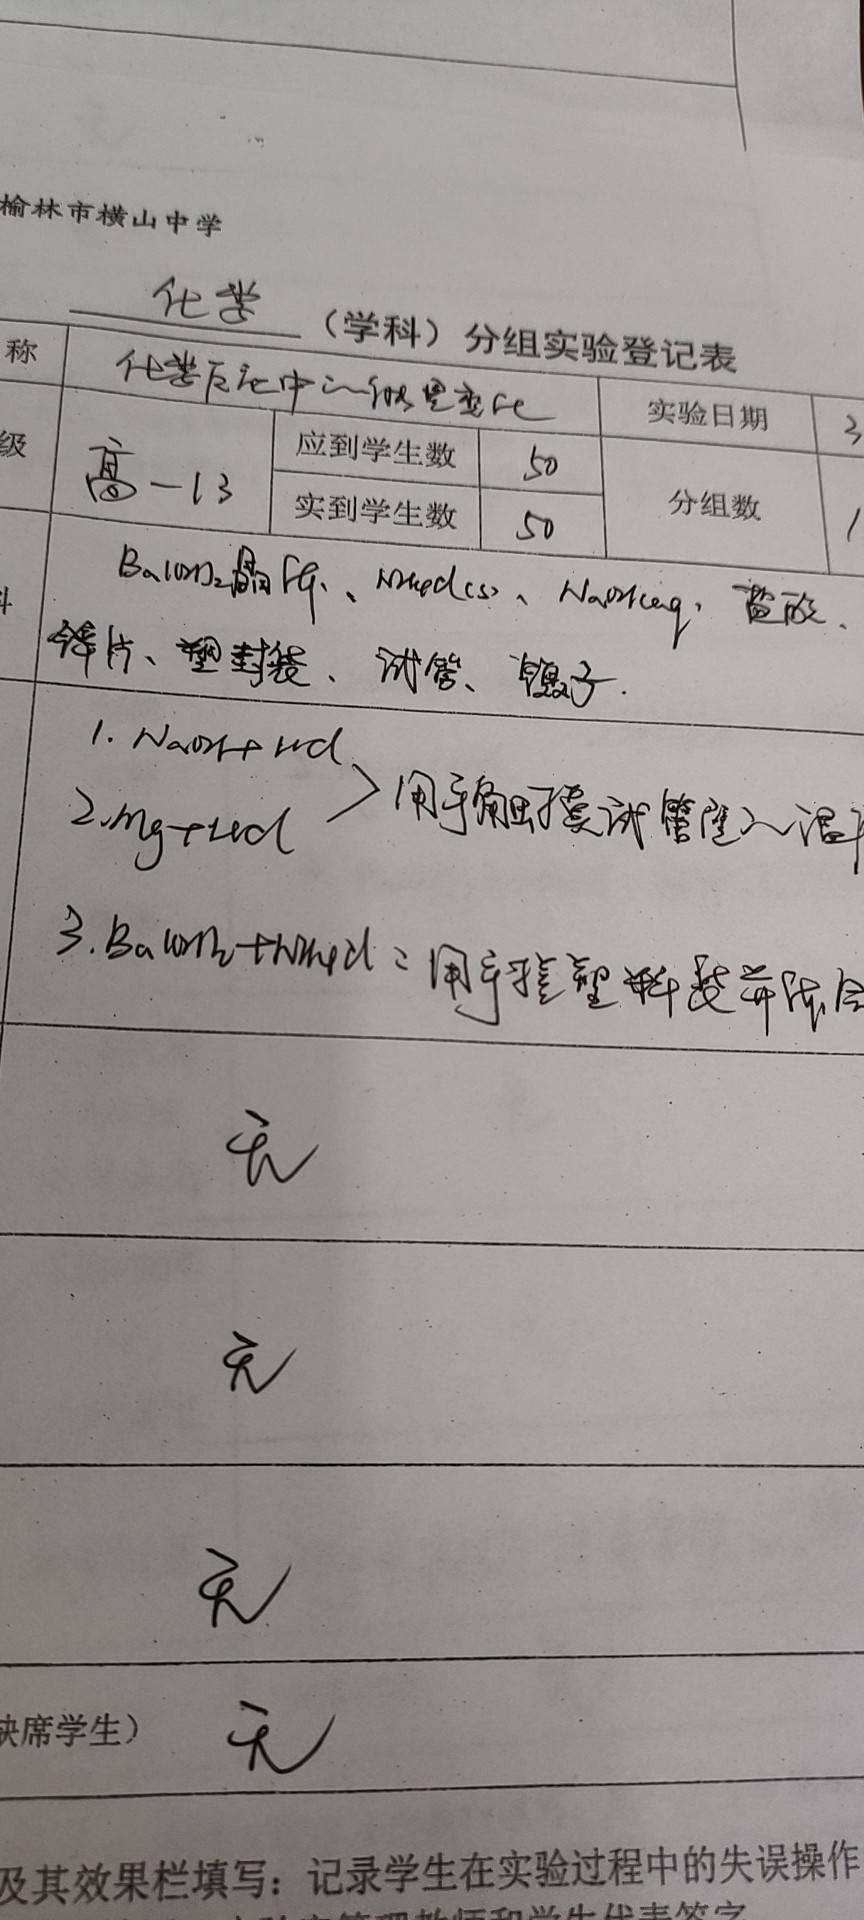 榆林市横山中学
化学（学科）分组实验登记表
称 化学反应中的能量变化 实验日期 3
级 高一13 应到学生数 50 分组数 1
实到学生数 50
Ba(OH)₂晶体、NH₄Cl(s)、NaOH(aq)、盐酸、
镁片、塑封袋、试管、镊子.
1. NaOH+HCl
2. Mg+HCl > 用手触摸试管壁的温
3. Ba(OH)₂+NH₄Cl: 用手 塑料袋并
无
无
无
缺席学生） 无
及其效果栏填写：记录学生在实验过程中的失误操作
管理教师和学生代表签字